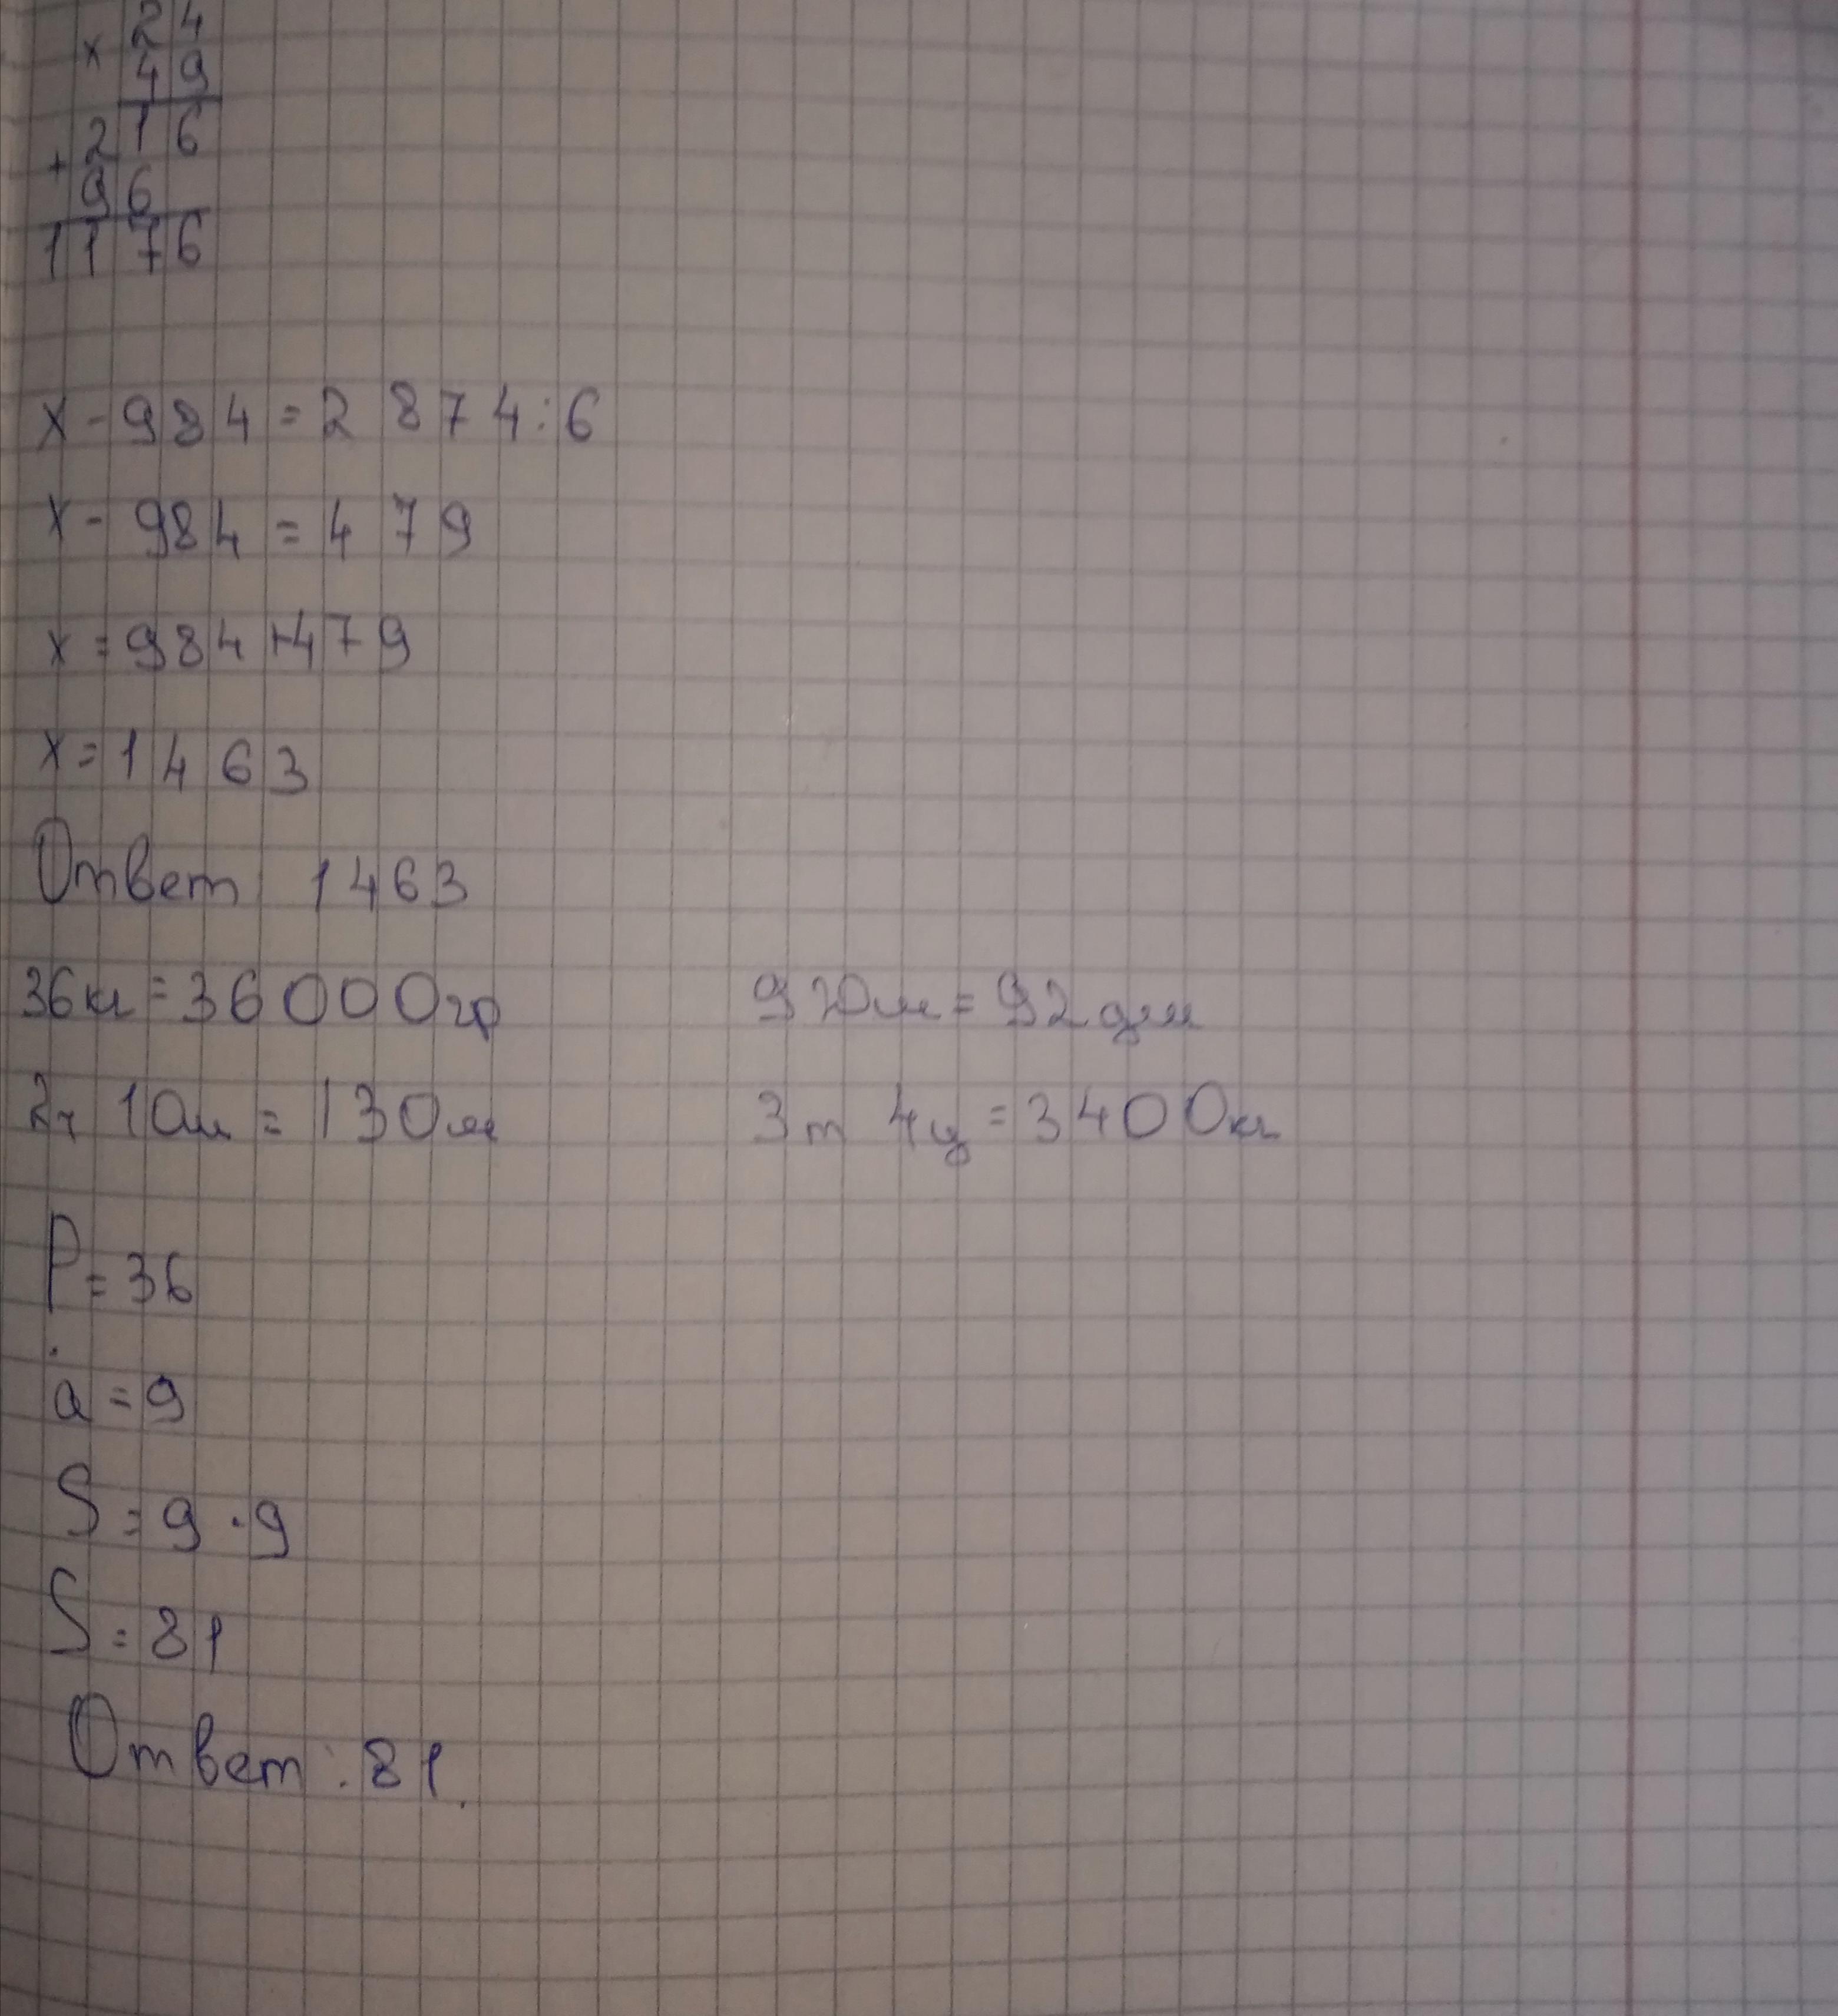 24
× 49
216
+ 96
1176
x - 984 = 2 874 : 6
x - 984 = 479
x = 984 + 479
x = 1463
Ответ 1463
36кг = 36000гр 920м = 92 дм
2ч 10м = 130м 3т 4ц = 3400кг
P = 36
a = 9
S = 9 · 9
S = 81
Ответ : 81.